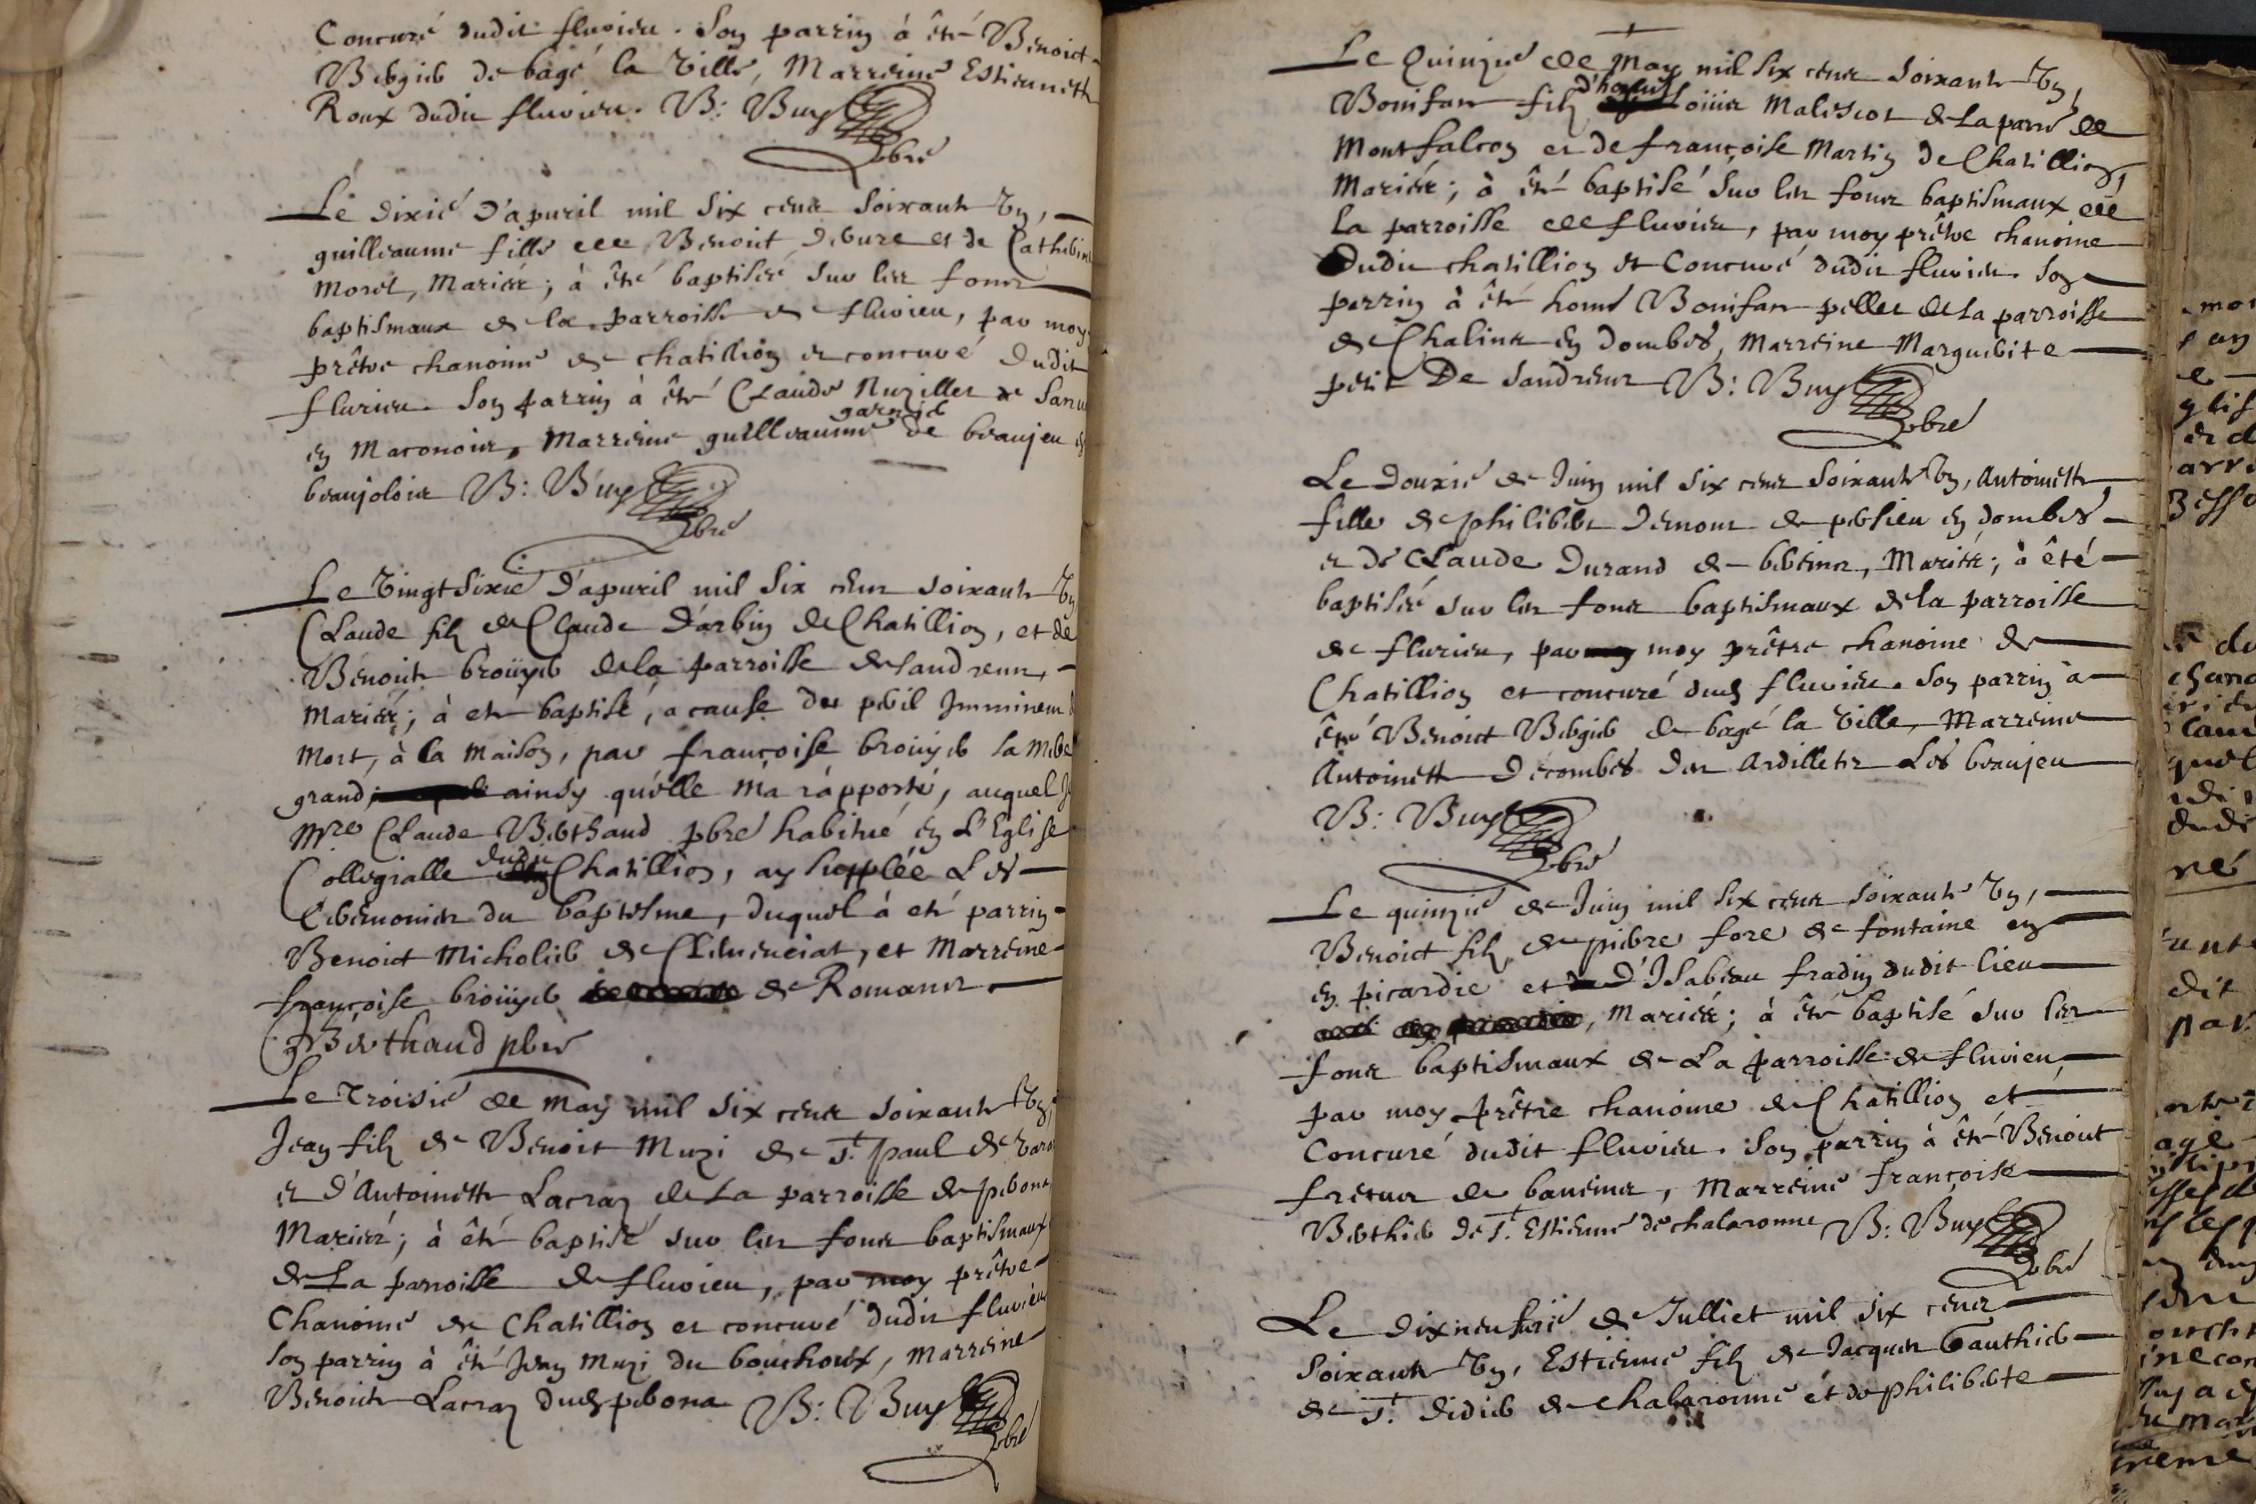 Concuré dudit fluvieu. Son parrin à êté Benoict
Bergier de bagé la ville, Marreine Estiennette
Roux dudit fluvieu. B: Buy
pbre
Le dixié d'apuril mil six cens soixante un,
guilleaume fille de Benoict Debure et de Catherine
Morel, Mariés; à êté baptisée sur les fons
baptismaux de la parroisse de fluvieu, par moy
prêtre chanoine de chatillion et concuré dudit
flurieu. Son parrin à êté Claude Nuziller de
en Maconois, Marreine guilleaume garnier de beaujeu
beaujolois B: Buy
pbre
Le vingt sixié d'apuril mil six cens soixante un
Claude fils de Claude D'arbin de Chatillion, et de
Benoite broüyer de la parroisse de sandrens,
Mariés; à eté baptisé, a cause du peril Imminent d
Mort, à la maison, par françoise broüyer sa mere
grand; ainsy qu'elle m'a rapporté, auquel Je
Mre Claude Berthaud pbre habitué en L'Eglise
Collegialle dudit Chatillion, ay suppléé Les
Ceremonies du baptesme, duquel à eté parrin
Benoict Micholier de Clemenciat, et Marreine
françoise broüyer de Romans
C Berthaud pbre
Le Troisié de May mil six cens soixante un,
Jean fils de Benoit Muzi de St. paul de varax
et d'Antoinette Lacraz de La parroisse de perona
Mariés; à êté baptisé sur les fons baptismaux
de La parroisse de fluvieu, par moy prêtre
Chanoine de Chatillion et concuré dudit fluvieu
son parrin à êté Jean Muzi du bouchoux, Marreine
Benoite Lacraz dud perona B: Buy
pbre
Le Quinzié de May mil six cens soixante un,
Bonifan fils d'honest Loüis Maliscot de La parre de
Montfalcon et de françoise Martin de Chatillion,
Mariés; à êté baptisé sur les fons baptismaux de
La parroisse de fluvieu, par moy prêtre chanoine
Dudit chatillion et Concuré dudit fluvieu. son
perrin à êté honest Bonifan pellet de La parroisse
de Chalins en dombes, Marreine Marguerite
petit De sandrens B: Buy
pbre
Le douzié de Juin mil six cens soixante un, Antoinette
fille de philibert Demont de persieu en dombes
et de Claude Durand de bereins, Mariés; à êté
baptisée sur les fons baptismaux de la parroisse
de flurieu, par moy prêtre chanoine de
Chatillion et concuré dud fluvieu. Son parrin à
êté Benoict Bergier de bagé la ville, Marreine
Antoinette Decombes des Ardillets Les beaujeu
B: Buy
pbre
Le quinzié de Juin mil six cens soixante un,
Benoict fils de pierre fore de fontaine en
en picardie et d'Isabeau fradin dudit lieu
, Mariés; à êté baptisé sur les
fons baptismaux de La parroisse de fluvieu,
par moy prêtre chanoine de Chatillion et
Concuré dudit fluvieu. Son parrin à êté Benoict
fretus de baneins, Marreine françoise
Berthier de St. Estienne de chalaronne B: Buy
pbre
Le dixneufvié de Julliet mil six cens
soixante un, Estienne fils de Jacques Gauthier
de St. didier de chalaronne et de philiberte